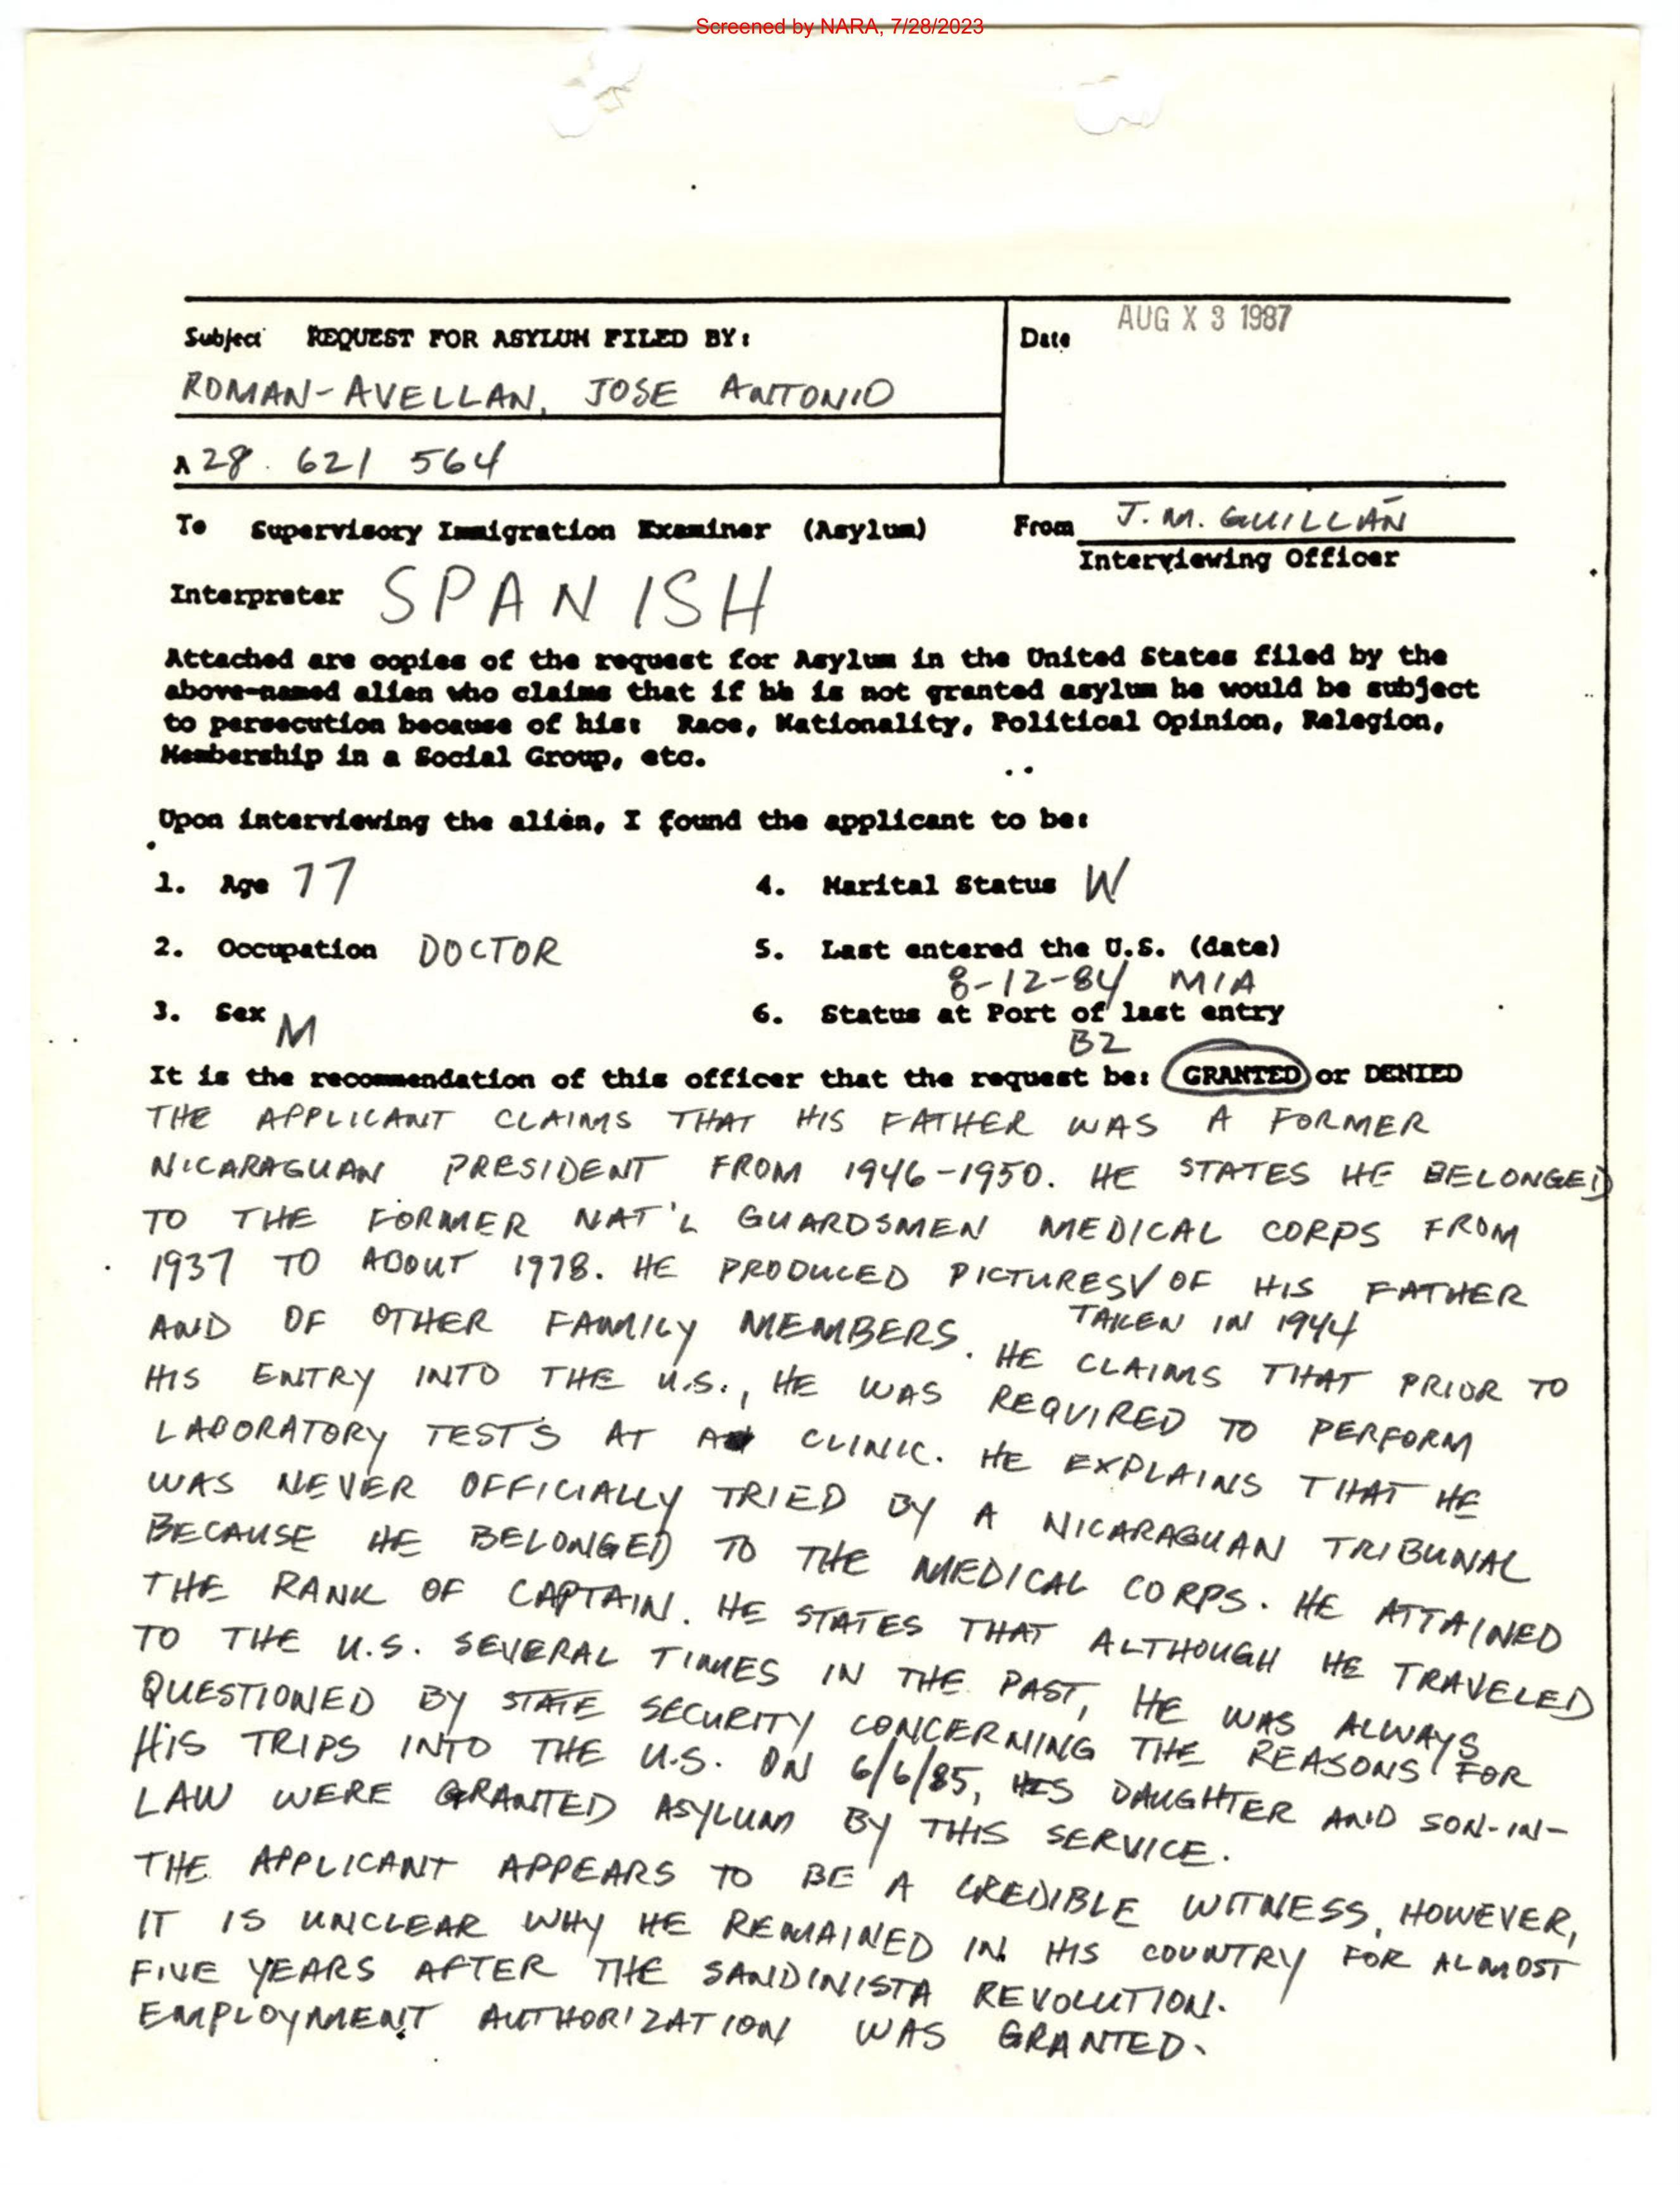 Screened by NARA, 7/28/2023
Subject REQUEST FOR ASYLUM FILED BY:
Date AUG X 3 1987
ROMAN-AVELLAN, JOSE ANTONIO
A 28. 621 564
To Supervisory Immigration Examiner (Asylum)
From J. M. GUILLÁN
Interviewing Officer
Interpreter SPANISH
Attached are copies of the request for Asylum in the United States filed by the
above-named alien who claims that if he is not granted asylum he would be subject
to persecution because of his: Race, Nationality, Political Opinion, Relegion,
Membership in a Social Group, etc.
Upon interviewing the alien, I found the applicant to be:
1. Age 77
4. Marital Status W
2. Occupation DOCTOR
5. Last entered the U.S. (date)
8-12-84 MIA
3. Sex M
6. Status at Port of last entry
B2
It is the recommendation of this officer that the request be: GRANTED or DENIED
THE APPLICANT CLAIMS THAT HIS FATHER WAS A FORMER
NICARAGUAN PRESIDENT FROM 1946-1950. HE STATES HE BELONGED
TO THE FORMER NAT'L GUARDSMEN MEDICAL CORPS FROM
1937 TO ABOUT 1978. HE PRODUCED PICTURES V OF HIS FATHER
TAKEN IN 1944
AND OF OTHER FAMILY MEMBERS. HE CLAIMS THAT PRIOR TO
HIS ENTRY INTO THE U.S., HE WAS REQUIRED TO PERFORM
LABORATORY TESTS AT A CLINIC. HE EXPLAINS THAT HE
WAS NEVER OFFICIALLY TRIED BY A NICARAGUAN TRIBUNAL
BECAUSE HE BELONGED TO THE MEDICAL CORPS. HE ATTAINED
THE RANK OF CAPTAIN. HE STATES THAT ALTHOUGH HE TRAVELED
TO THE U.S. SEVERAL TIMES IN THE PAST, HE WAS ALWAYS
QUESTIONED BY STATE SECURITY CONCERNING THE REASONS FOR
HIS TRIPS INTO THE U.S. ON 6/6/85, HIS DAUGHTER AND SON-IN-
LAW WERE GRANTED ASYLUM BY THIS SERVICE.
THE APPLICANT APPEARS TO BE A CREDIBLE WITNESS, HOWEVER,
IT IS UNCLEAR WHY HE REMAINED IN HIS COUNTRY FOR ALMOST
FIVE YEARS AFTER THE SANDINISTA REVOLUTION.
EMPLOYMENT AUTHORIZATION WAS GRANTED.